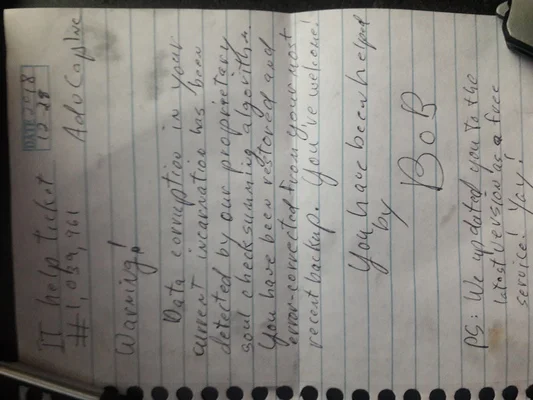 IT help ticket
DATE 2018
12-28
#1,039,961 AdvCapInc
Warning!
Data corruption in your
current incarnation has been
detected by our proprietary
soul checksumming algorithm.
You have been restored and
error-corrected from your most
recent backup. You're welcome!
You have been helped
by
BoB
PS: We updated you to the
latest version as a free
service! Yay!